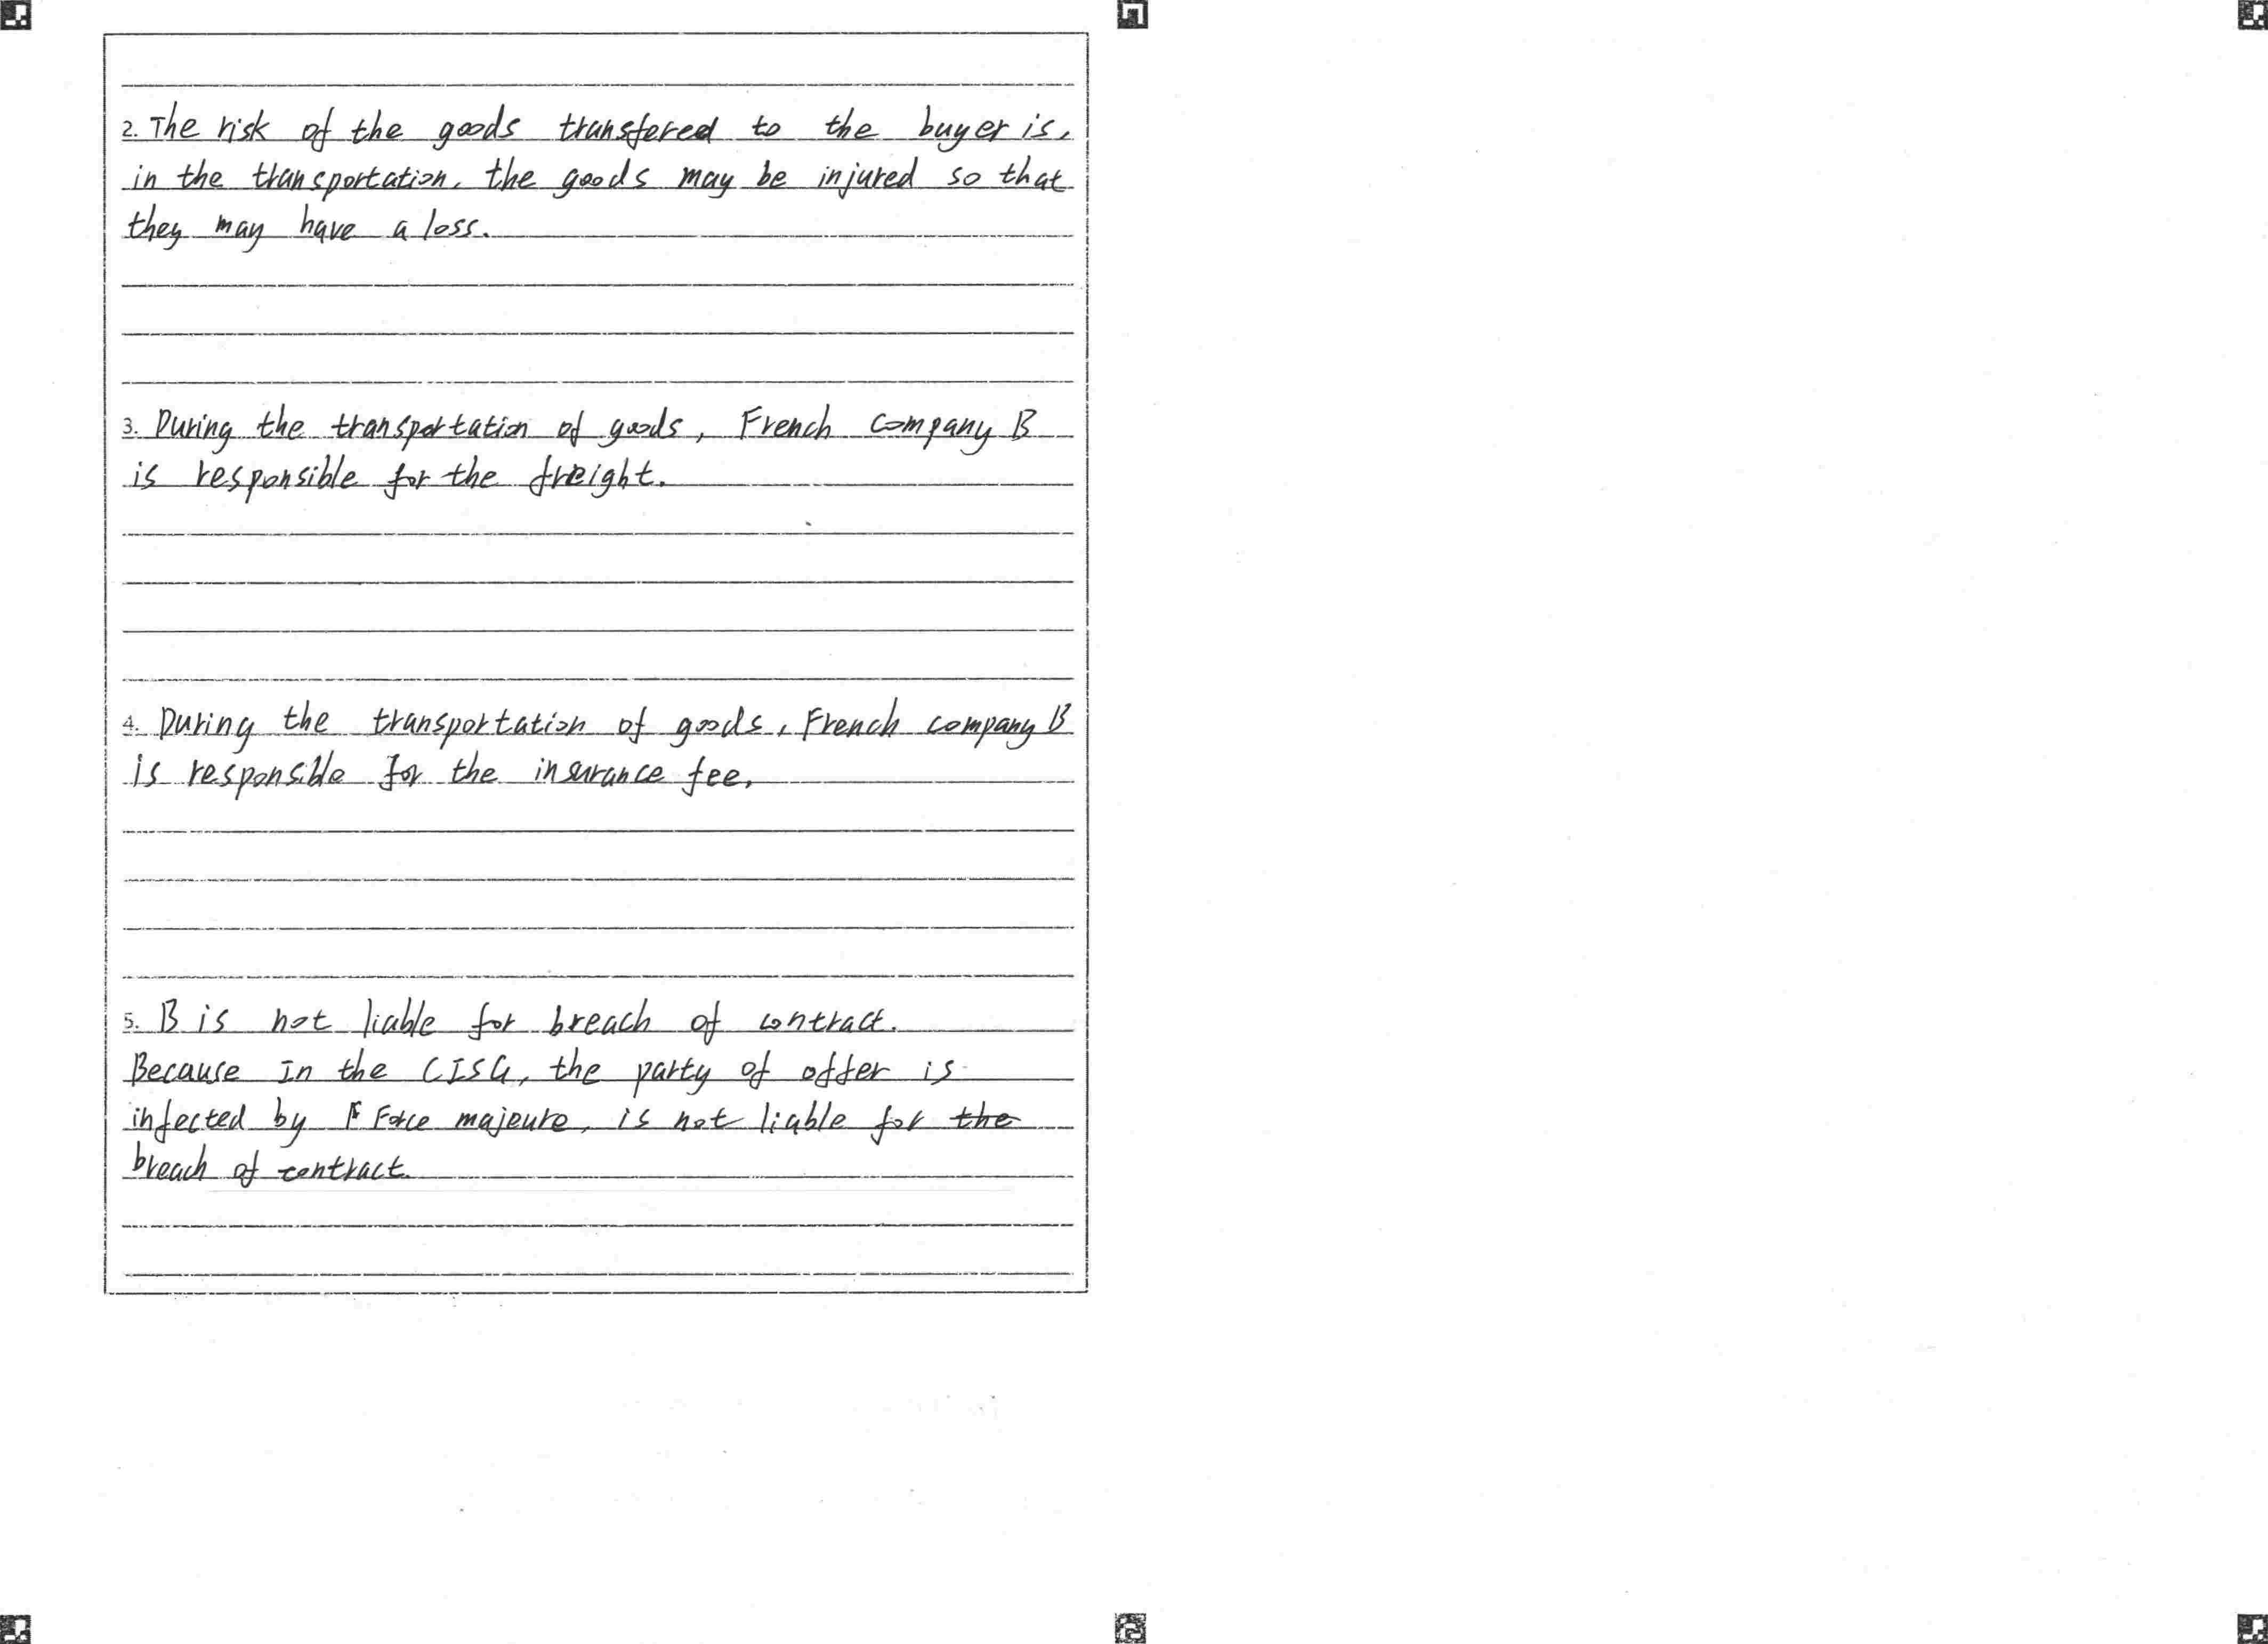 2. The risk of the goods transfered to the buyer is,
in the transportation, the goods may be injured so that
they may have a loss.
3. During the transportation of goods, French company B
is responsible for the freight.
4. During the transportation of goods, French company B
is responsible for the insurance fee.
5. B is not liable for breach of contract.
Because In the CISG, the party of offer is
infected by Force majeure, is not liable for the
breach of contract.